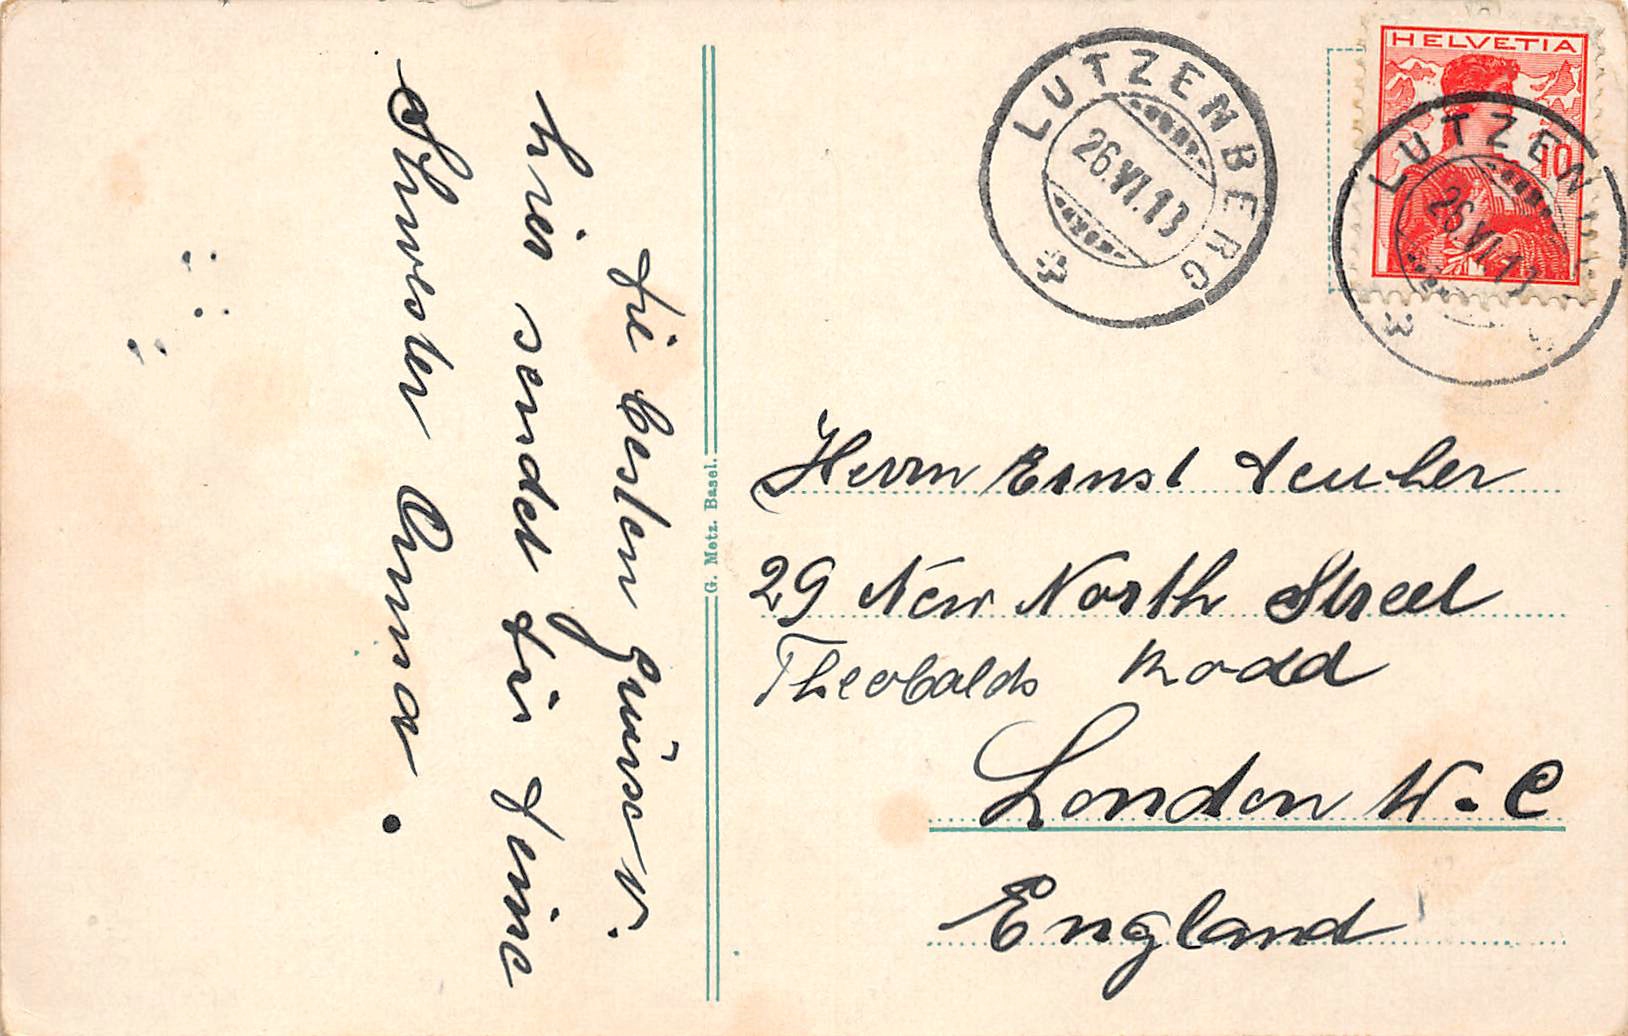 Die besten Grüsse v.
hier sendet dir deine
Schwester Anna.
G. Metz. Basel.
HELVETIA
10
LUTZENBERG
26.VI.13
LUTZEN
26.VI.13
Herrn Ernst
29 New North Street
Theobalds Rodd
London W.C
England